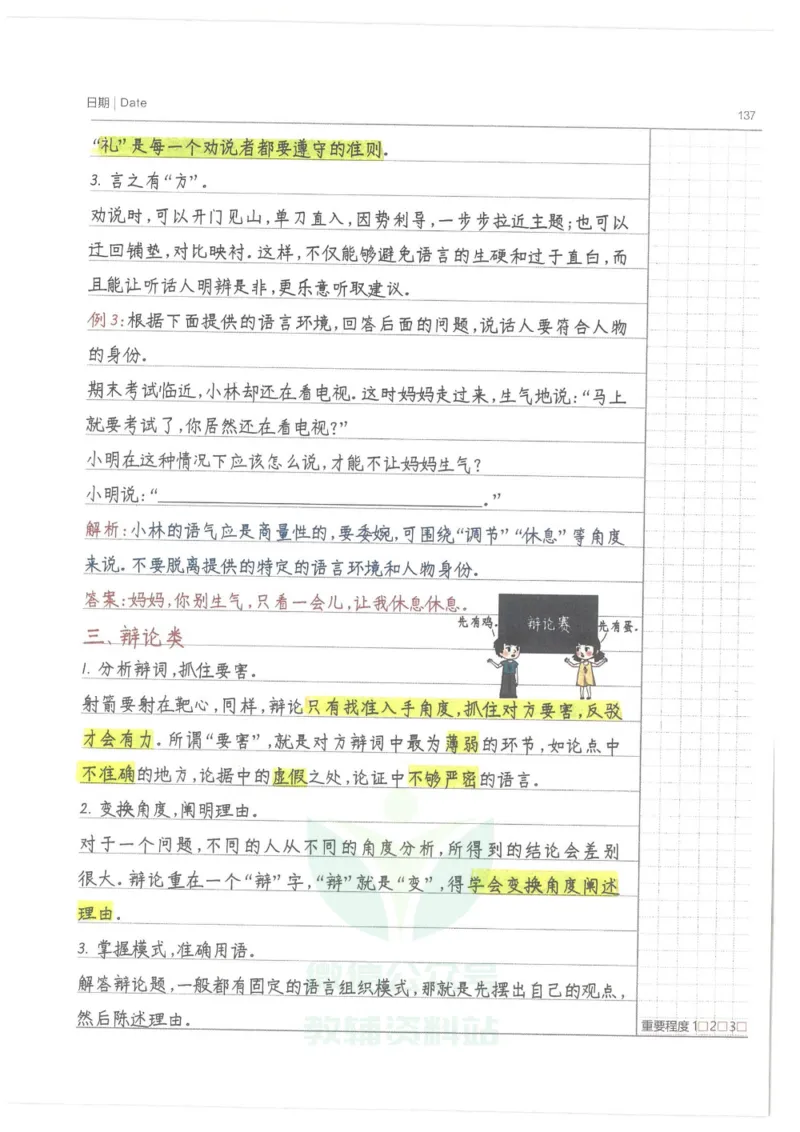 日期 | Date
137
“礼”是每一个劝说者都要遵守的准则.
3. 言之有“方”.
劝说时,可以开门见山,单刀直入,因势利导,一步步拉近主题;也可以
迂回铺垫,对比映衬.这样,不仅能够避免语言的生硬和过于直白,而
且能让听话人明辨是非,更乐意听取建议.
例3:根据下面提供的语言环境,回答后面的问题,说话人要符合人物
的身份.
期末考试临近,小林却还在看电视.这时妈妈走过来,生气地说:“马上
就要考试了,你居然还在看电视?”
小明在这种情况下应该怎么说,才能不让妈妈生气?
小明说:“____________________.”
解析:小林的语气应是商量性的,要委婉,可围绕“调节”“休息”等角度
来说.不要脱离提供的特定的语言环境和人物身份.
答案:妈妈,你别生气,只看一会儿,让我休息休息.
先有鸡.
辩论赛
先有蛋.
三、辩论类
1. 分析辩词,抓住要害.
射箭要射在靶心,同样,辩论只有找准入手角度,抓住对方要害,反驳
才会有力.所谓“要害”,就是对方辩词中最为薄弱的环节,如论点中
不准确的地方,论据中的虚假之处,论证中不够严密的语言.
2. 变换角度,阐明理由.
对于一个问题,不同的人从不同的角度分析,所得到的结论会差别
很大.辩论重在一个“辩”字,“辩”就是“变”,得学会变换角度阐述
理由.
3. 掌握模式,准确用语.
解答辩论题,一般都有固定的语言组织模式,那就是先摆出自己的观点,
然后陈述理由.
微信公众号
教辅资料站
重要程度 1□2□3□